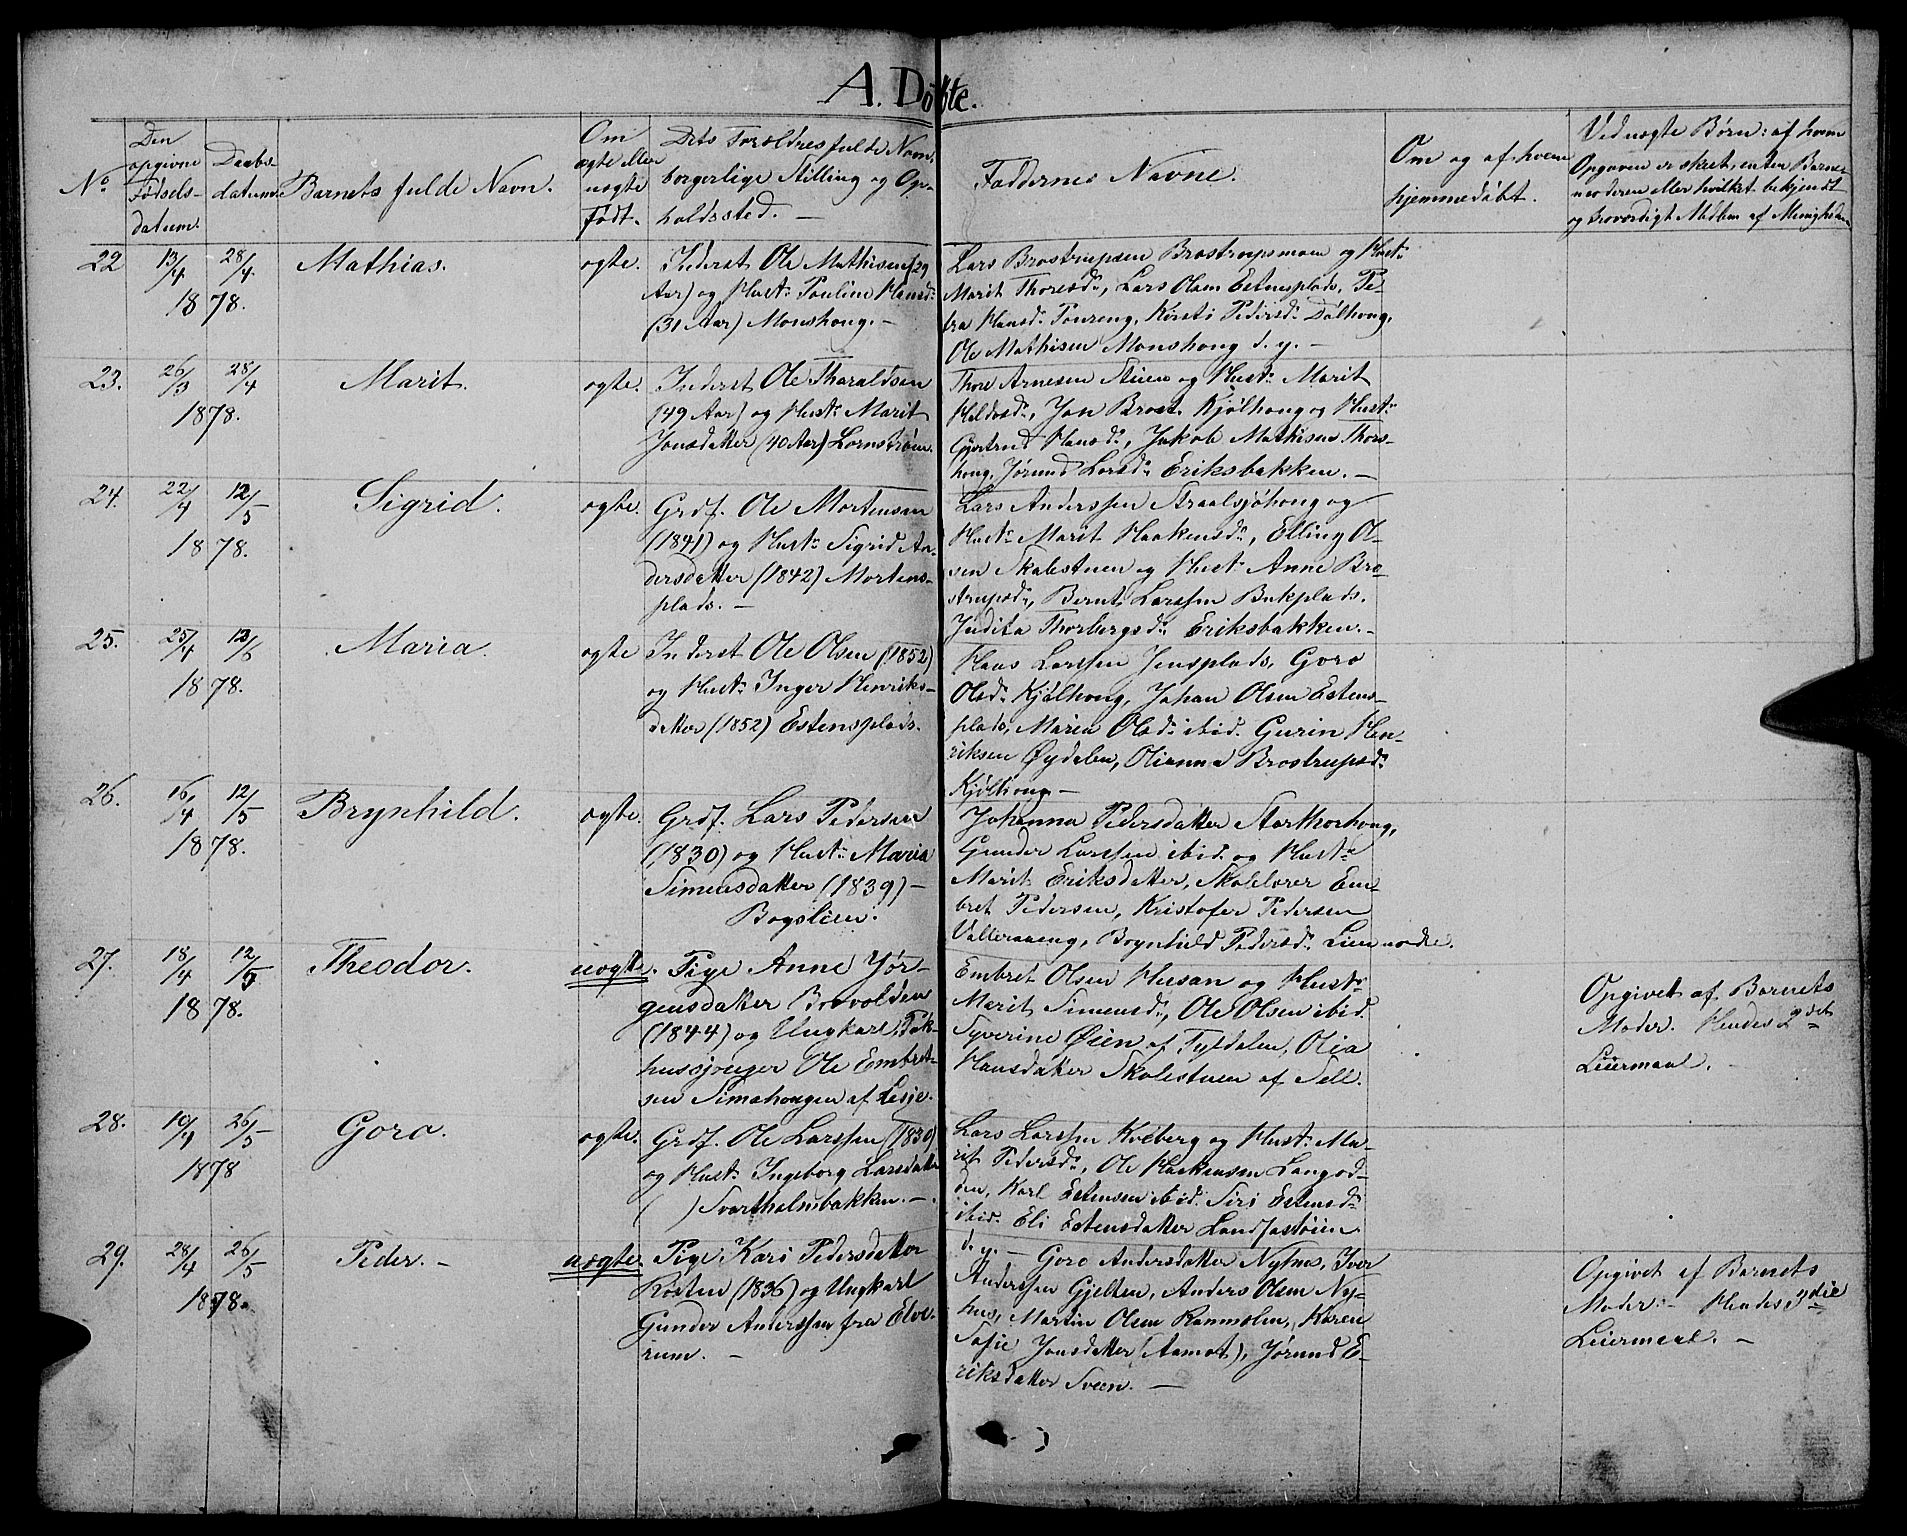 A. Døbte.
No
Den opgivne Fødselsdatum.
Daabsdatum.
Barnets fulde Navn.
Om ægte eller uægte Født.
Dets Forældres fulde Navn, borgerlige Stilling og Opholdssted. —
Faddernes Navne.
Om og af hvem hjemmedøbt.
Ved uægte Børn: af hvem
Opgaven er skret, enten Barne-
moderen eller hvilket bekjendt
og troværdigt Medlem af Menigheden
22 13/4 28/4 Mathias. ægte. Inderst Ole Mathisen (29
1878. Aar) og Hustr Pauline Hansdr
(31 Aar) Monshoug. —
Lars Brostrupsen Brostrupsmoen og Hustr
Marit Thoresdr, Lars Olsen Estensplads, Pe-
tra Hansdr Toureng, Kirsti Pedersdr Dølhoug,
Ole Mathisen Monshoug d. y. —
23. 26/3 28/4 Marit. ægte. Inderst Ole Tharaldsen
1878. (49 Aar) og Hustr Marit
Jonsdatter (40 Aar) Lornstrøm.
Thore Arnesen Stuen og Hustr Marit
Haldosdr, Jon Brost. Kjølhoug og Hustr
Gjertrud Hansdr, Jakob Mathisen Thors-
houg, Jørund Larsdr Eriksbakken. —
24. 22/4 12/5 Sigrid. ægte. Grdf. Ole Mortensen
1878. (1841) og Hustr Sigrid An-
dersdatter (1842) Mortens-
plads. —
Lars Anderssen Straalsjøhoug og
Hustr Marit Haakensdr, Elling Ol-
sen Skolestuen og Hustr Anne Bro-
strupsdr, Bernt Larssen Bukplads.
Judita Thorbergsdr Eriksbakken. —
25. 25/4 12/5 Maria. ægte Inderst Ole Olsen (1852)
1878. og Hustr Inger Henriks-
datter (1852) Estensplads.
Hans Larssen Jensplads, Goro
Olsdr Kjølhoug, Johan Olsen Estens-
plads, Maria Olsdr ibid. Gurin Hen-
riksen Øydalen, Olianna Brostrupsdr
Kjølhoug —
26. 16/4 12/5 Brynhild. ægte. Grdf. Lars Pedersen
1878. (1830) og Hustr Maria
Simensdatter (1839) —
Bogslien.
Johanna Pedersdatter Storthorhoug,
Gunder Larssen ibid. og Hustr
Marit Eriksdatter, Skolelærer Em-
bret Pedersen, Kristofer Pedersen
Vollerneeng, Brynhild Pedersdr Lien nordre.
27. 18/4 12/5 Theodor. uægte. Pige Anne Jør-
1878. gensdatter Brovolden
(1844) og Ungkarl, Tøk-
husgjenger Ole Embret-
sen Simahougen af Lesje.
Embret Olsen Husan og Hustr
Marit Simensdr, Ole Olsen ibid.
Syverine Øien af Tyldalen, Olea
Hansdatter Skolestuen af Sell.
Opgivet af Barnets
Moder. Hendes 2det
Leiermaal.
28. 19/4 26/5 Goro. ægte. Grdf. Ole Larssen (1830)
1878 og Hustr Ingeborg Larsdatter
( ) Svartholmbakken. —
Lars Larssen Kveberg og Hustr Ma-
rit Pedersdr, Ole Haakensen Langod-
den, Karl Estensen ibid. Siri Estensdr
ibid. Eli Estensdatter Landfastøien
d. y. —
29. 28/4 26/5 Peder. — uægte. Pige Kari Pedersdatter
1878. Røsten (1836) og Ungkarl
Gunder Anderssen fra Elve-
rum. —
Goro Andersdatter Nytrøs, Iver
Anderssen Gjelten, Anders Olsen Ny-
hus, Martin Olsen Ramsølen, Karen
Sofie Jonsdatter (Aamot), Jørund E-
riksdatter Sveen. —
Opgivet af Barnets
Moder. — Hendes 3die
Leiermaal. —